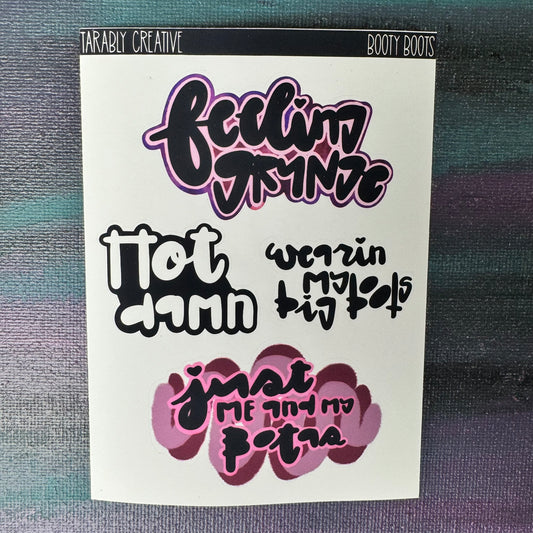 TARABLY CREATIVE BOOTY BOOTS
feeling
grande
Hot
damn
wearin
my
big boots
just
me and my
Botas